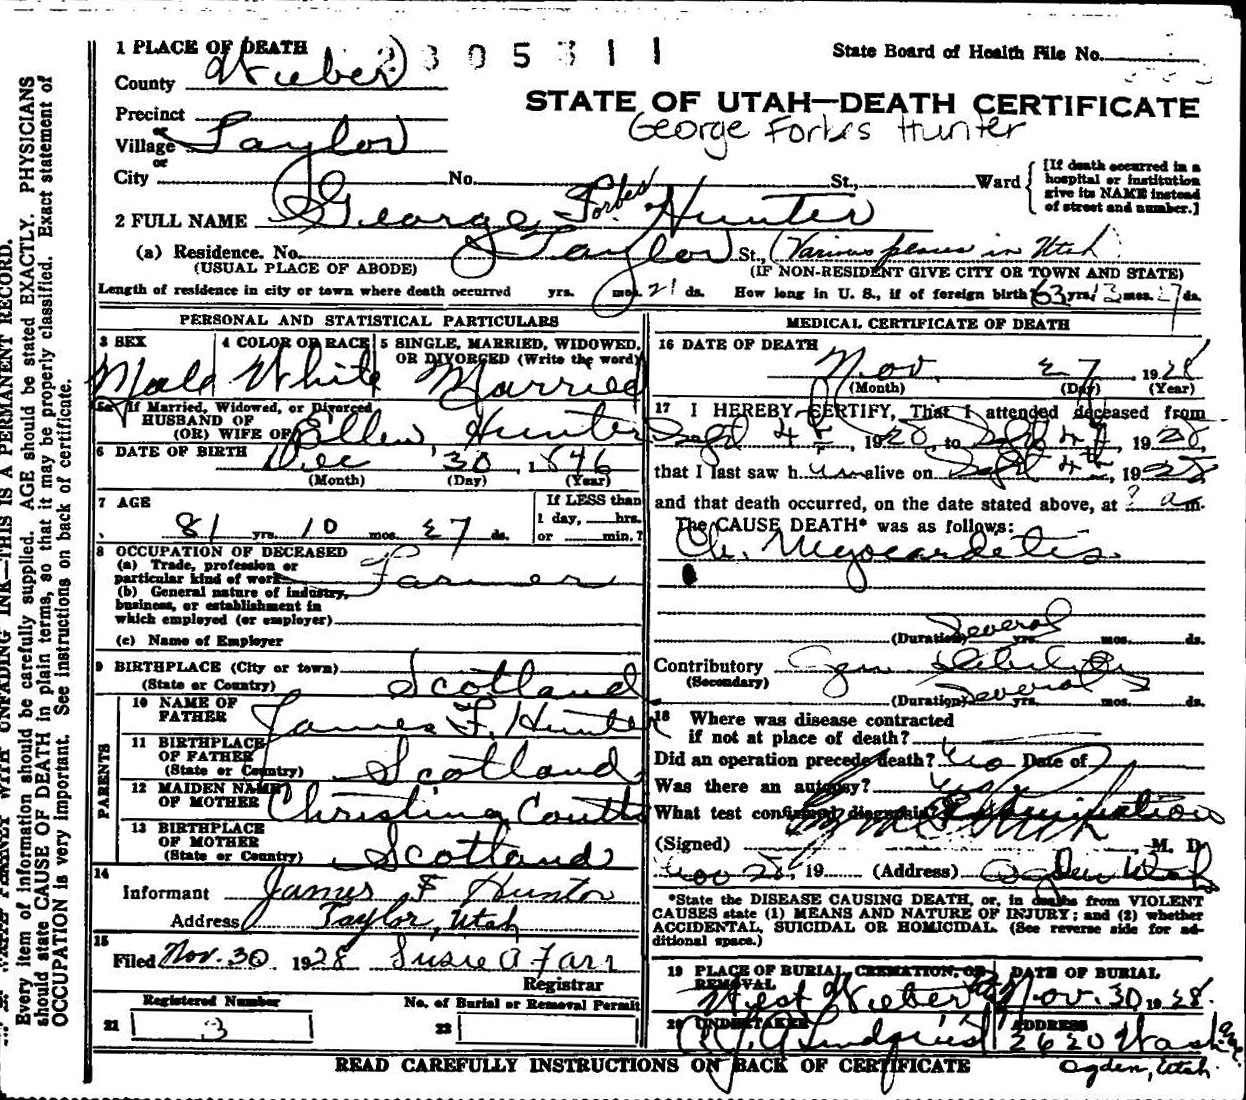 1 PLACE OF DEATH
2305311
State Board of Health File No.
County Weber
STATE OF UTAH—DEATH CERTIFICATE
George Forbes Hunter
Precinct
or
Village Taylor
or
City No. St., Ward
[If death occurred in a
hospital or institution
give its NAME instead
of street and number.]
2 FULL NAME George Forbes Hunter
(a) Residence. No. Taylor St., (Various places in Utah
(USUAL PLACE OF ABODE) (IF NON-RESIDENT GIVE CITY OR TOWN AND STATE)
Length of residence in city or town where death occurred yrs. mos. 21 ds. How long in U. S., if of foreign birth? 63 yrs. mos. ds.
PERSONAL AND STATISTICAL PARTICULARS
3 SEX 4 COLOR OR RACE 5 SINGLE, MARRIED, WIDOWED,
OR DIVORCED (Write the word)
Male White Married
5a If Married, Widowed, or Divorced
HUSBAND OF
(OR) WIFE OF Ellen Hunter
6 DATE OF BIRTH Dec 30, 1846
(Month) (Day) (Year)
7 AGE
If LESS than
1 day, hrs.
or min.?
81 yrs. 10 mos. 27 ds.
8 OCCUPATION OF DECEASED
(a) Trade, profession or
particular kind of work Farmer
(b) General nature of industry,
business, or establishment in
which employed (or employer)
(c) Name of Employer
9 BIRTHPLACE (City or town)
(State or Country) Scotland
PARENTS
10 NAME OF
FATHER James F. Hunter
11 BIRTHPLACE
OF FATHER
(State or Country) Scotland
12 MAIDEN NAME
OF MOTHER Christina Coutts
13 BIRTHPLACE
OF MOTHER
(State or Country) Scotland
14
Informant James F Hunter
Address Taylor, Utah
15
Filed Nov. 30 1928 Susie A Farr
Registrar
Registered Number No. of Burial or Removal Permit
21 3 22
MEDICAL CERTIFICATE OF DEATH
16 DATE OF DEATH
Nov. 27 1928
(Month) (Day) (Year)
17 I HEREBY CERTIFY, That I attended deceased from
Sept 4th, 1928 to Sept 4th, 1928,
that I last saw h im alive on Sept 4th, 1928
and that death occurred, on the date stated above, at ? a m.
The CAUSE DEATH* was as follows:
Ch. Myocarditis
(Duration) Several yrs. mos. ds.
Contributory Gen Debility
(Secondary)
(Duration) Several yrs. mos. ds.
18 Where was disease contracted
if not at place of death?
Did an operation precede death? No Date of
Was there an autopsy?
What test confirmed diagnosis? Examination
(Signed) M. D.
Nov 28, 19 (Address) Ogden Utah
*State the DISEASE CAUSING DEATH, or, in deaths from VIOLENT
CAUSES state (1) MEANS AND NATURE OF INJURY; and (2) whether
ACCIDENTAL, SUICIDAL OR HOMICIDAL. (See reverse side for ad-
ditional space.)
19 PLACE OF BURIAL, CREMATION, OR
REMOVAL
West Weber
DATE OF BURIAL
Nov. 30 1928.
20 UNDERTAKER
Lindquist
ADDRESS
2620 Wash. Ave.
Ogden, Utah.
READ CAREFULLY INSTRUCTIONS ON BACK OF CERTIFICATE
WRITE PLAINLY WITH UNFADING INK—THIS IS A PERMANENT RECORD.
Every item of information should be carefully supplied. AGE should be stated EXACTLY. PHYSICIANS
should state CAUSE OF DEATH in plain terms, so that it may be properly classified. Exact statement of
OCCUPATION is very important. See instructions on back of certificate.